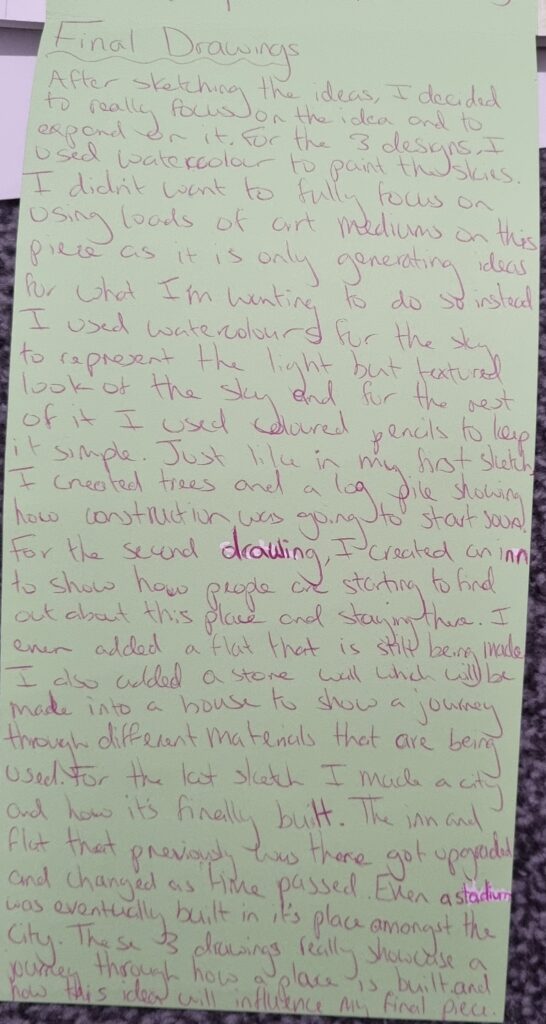 Final Drawings
After sketching the ideas, I decided
to really focus on the idea and to
expand on it. For the 3 designs, I
used watercolour to paint the skies.
I didn't want to fully focus on
using loads of art mediums on this
piece as it is only generating ideas
for what I'm wanting to do so instead
I used watercolours for the sky
to represent the light but textured
look of the sky and for the rest
of it I used coloured pencils to keep
it simple. Just like in my first sketch
I created trees and a log pile showing
how construction was going to start soon.
For the second drawing, I created an inn
to show how people are starting to find
out about this place and staying there. I
even added a flat that is still being made
I also added a stone wall which will be
made into a house to show a journey
through different materials that are being
used. For the last sketch I made a city
and how it's finally built. The inn and
flat that previously was there got upgraded
and changed as time passed. Even a stadium
was eventually built in it's place amongst the
City. These 3 drawings really showcase a
journey through how a place is built and
how this idea will influence my final piece.